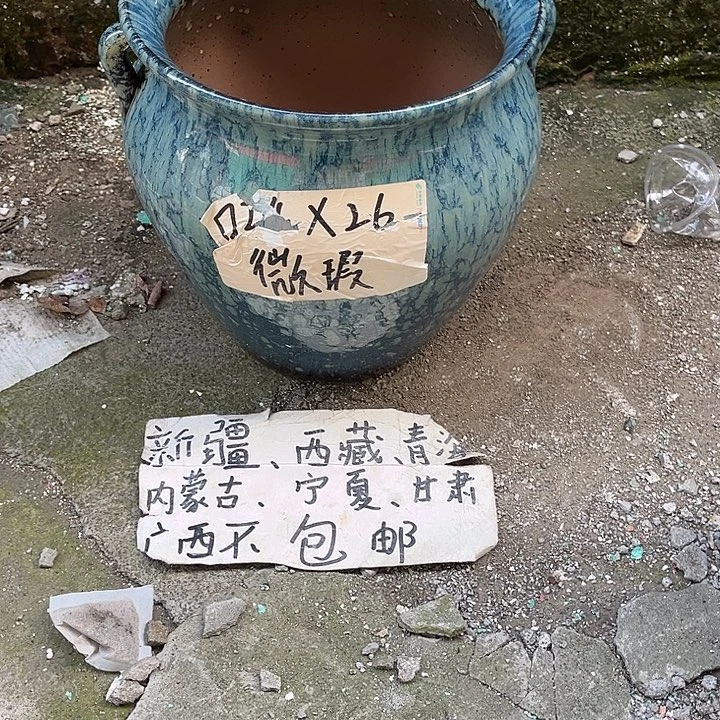 口2 X26
微瑕
新疆、西藏、青海
内蒙古、宁夏、甘肃
广西不包邮